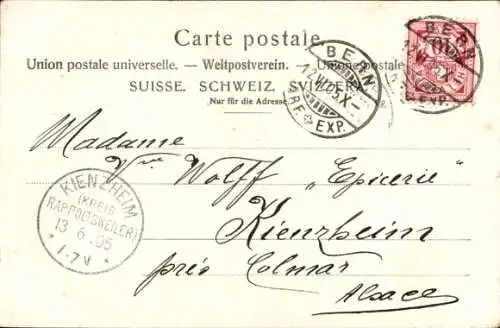 Carte postale.
Union postale universelle. — Weltpostverein. — Unione postale
SUISSE. SCHWEIZ. SVIZZERA.
Nur für die Adresse.
BERN
12.VI.05.X—
BRF. EXP.
BERN
10
EXP.
Madame
Vve Wolff "Epicerie"
Kienzheim
près Colmar
Alsace
KIENZHEIM
(KREIS
RAPPOLTSWEILER)
13 6 05
* 1-7V *